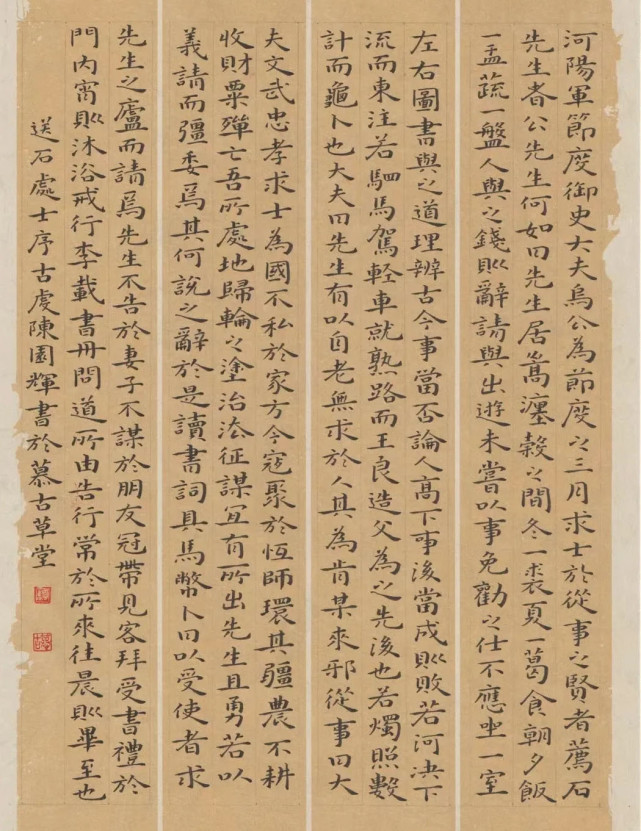 河陽軍節度御史大夫烏公為節度之三月求士於從事之賢者薦石
先生者公先生何如曰先生居嵩瀍榖之間冬一裘夏一葛食朝夕飯
一盂蔬一盤人與之錢則辭請與出遊未嘗以事免勸之仕不應坐一室
左右圖書與之道理辨古今事當否論人高下事後當成則敗若河決下
流而東注若駟馬駕輕車就熟路而王良造父為之先後也若燭照數
計而龜卜也大夫曰先生有以自老無求於人其為肯某來邪從事曰大
夫文武忠孝求士為國不私於家方今寇聚於恆師環其疆農不耕
收財粟殫亡吾所處地歸輪之塗治法征謀宜有所出先生且勇若以
義請而彊委焉其何說之辭於是讀書詞具馬幣卜曰以受使者求
先生之廬而請焉先生不告於妻子不謀於朋友冠帶見客拜受書禮於
門內宵則沐浴戒行李載書冊問道所由告行常於所來往晨則畢至也
送石處士序古虔陳園輝書於慕古草堂